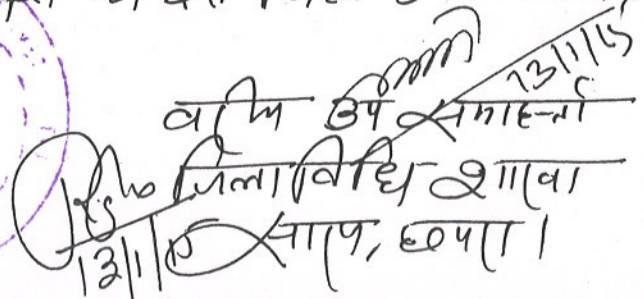 13/1/15
वरीय उप समाहर्ता
जिला विधि शाखा
13/1/15 सारण, छपरा।